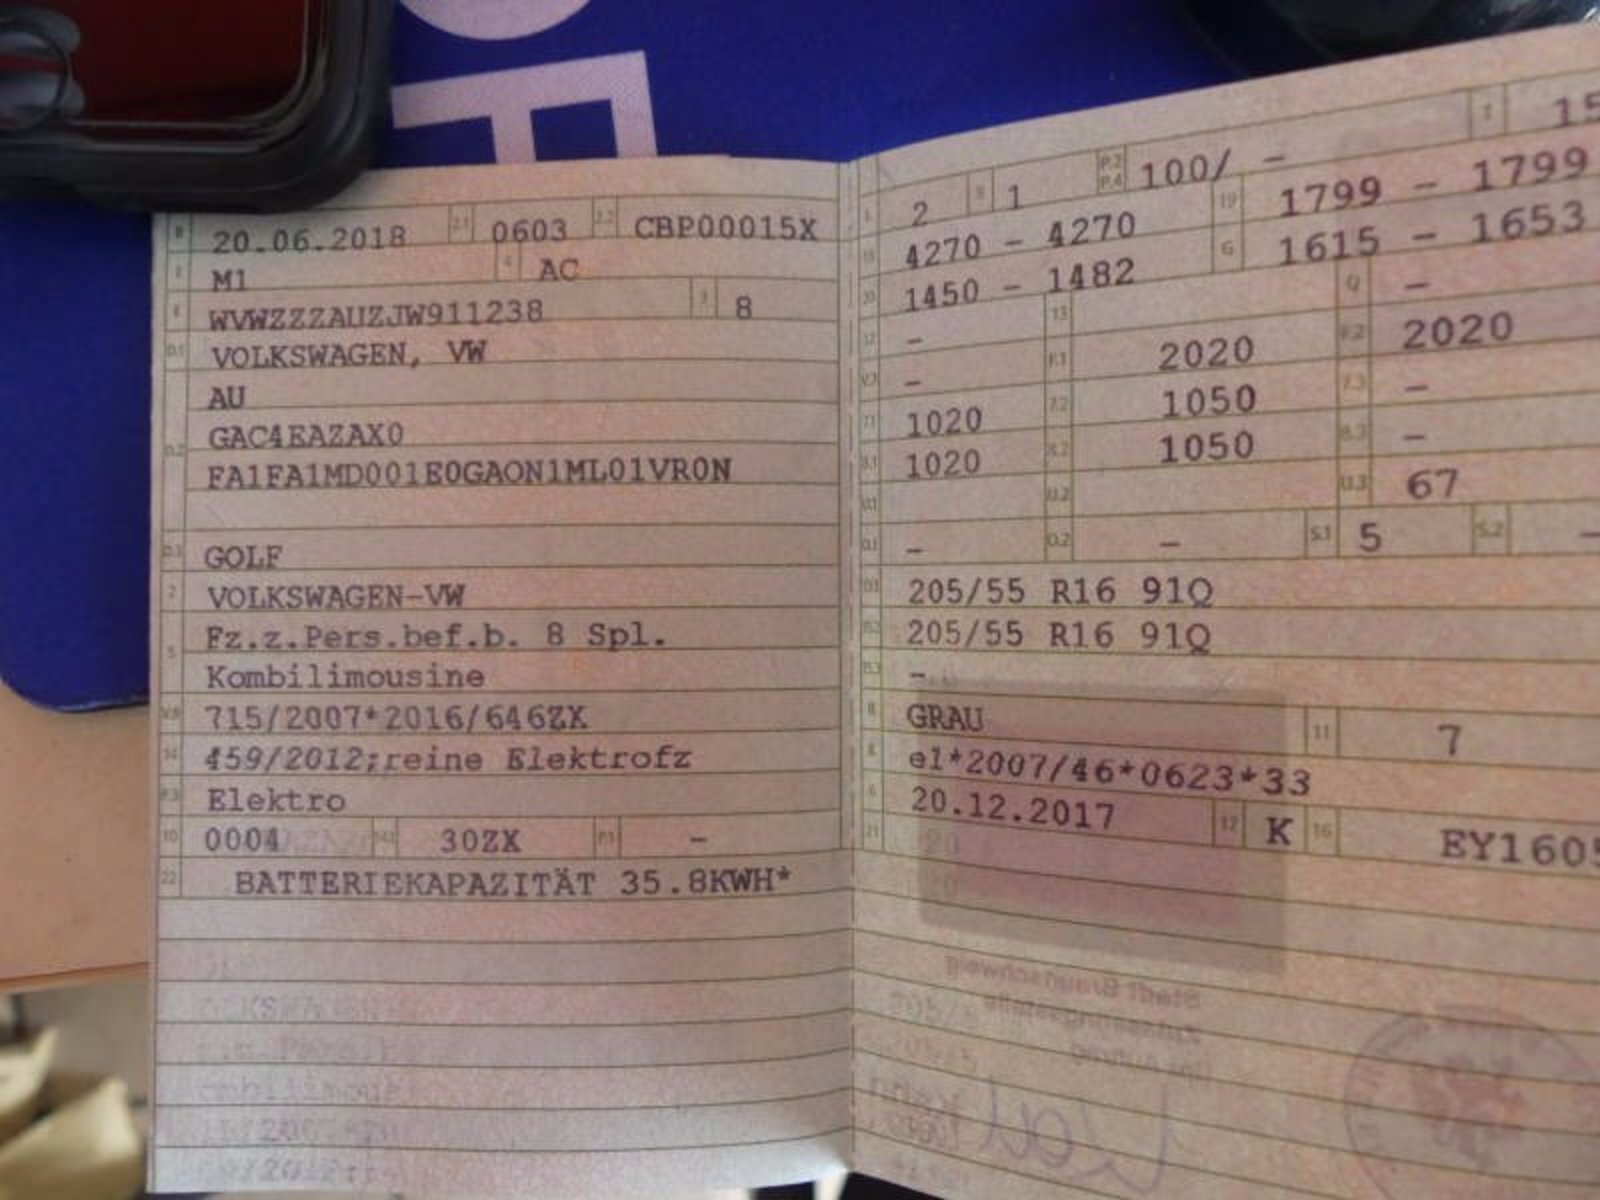 B 20.06.2018 2.1 0603 2.2 CBP00015X
J M1 4 AC
E WVWZZZAUZJW911238 3 8
D.1 VOLKSWAGEN, VW
AU
D.2 GAC4EAZAX0
FA1FA1MD001E0GAON1ML01VR0N
D.3 GOLF
2 VOLKSWAGEN-VW
5 Fz.z.Pers.bef.b. 8 Spl.
Kombilimousine
V.9 715/2007*2016/646ZX
14 459/2012;reine Elektrofz
P.3 Elektro
10 0004 14.1 30ZX P.1 -
22 BATTERIEKAPAZITÄT 35.8KWH*
T 15
L 2 9 1 P.2 P.4 100/ -
18 4270 - 4270 19 1799 - 1799
20 1450 - 1482 G 1615 - 1653
12 - 13 Q -
V.7 - F.1 2020 F.2 2020
7.1 1020 7.2 1050 7.3 -
8.1 1020 8.2 1050 8.3 -
U.1 U.2 U.3 67
O.1 - O.2 - S.1 5 S.2 -
15.1 205/55 R16 91Q
15.2 205/55 R16 91Q
15.3 -
R GRAU 11 7
K e1*2007/46*0623*33
6 20.12.2017 17 K 16 EY1605
21
Stadt Braunschweig
Zulassungsstelle
Im Auftrag